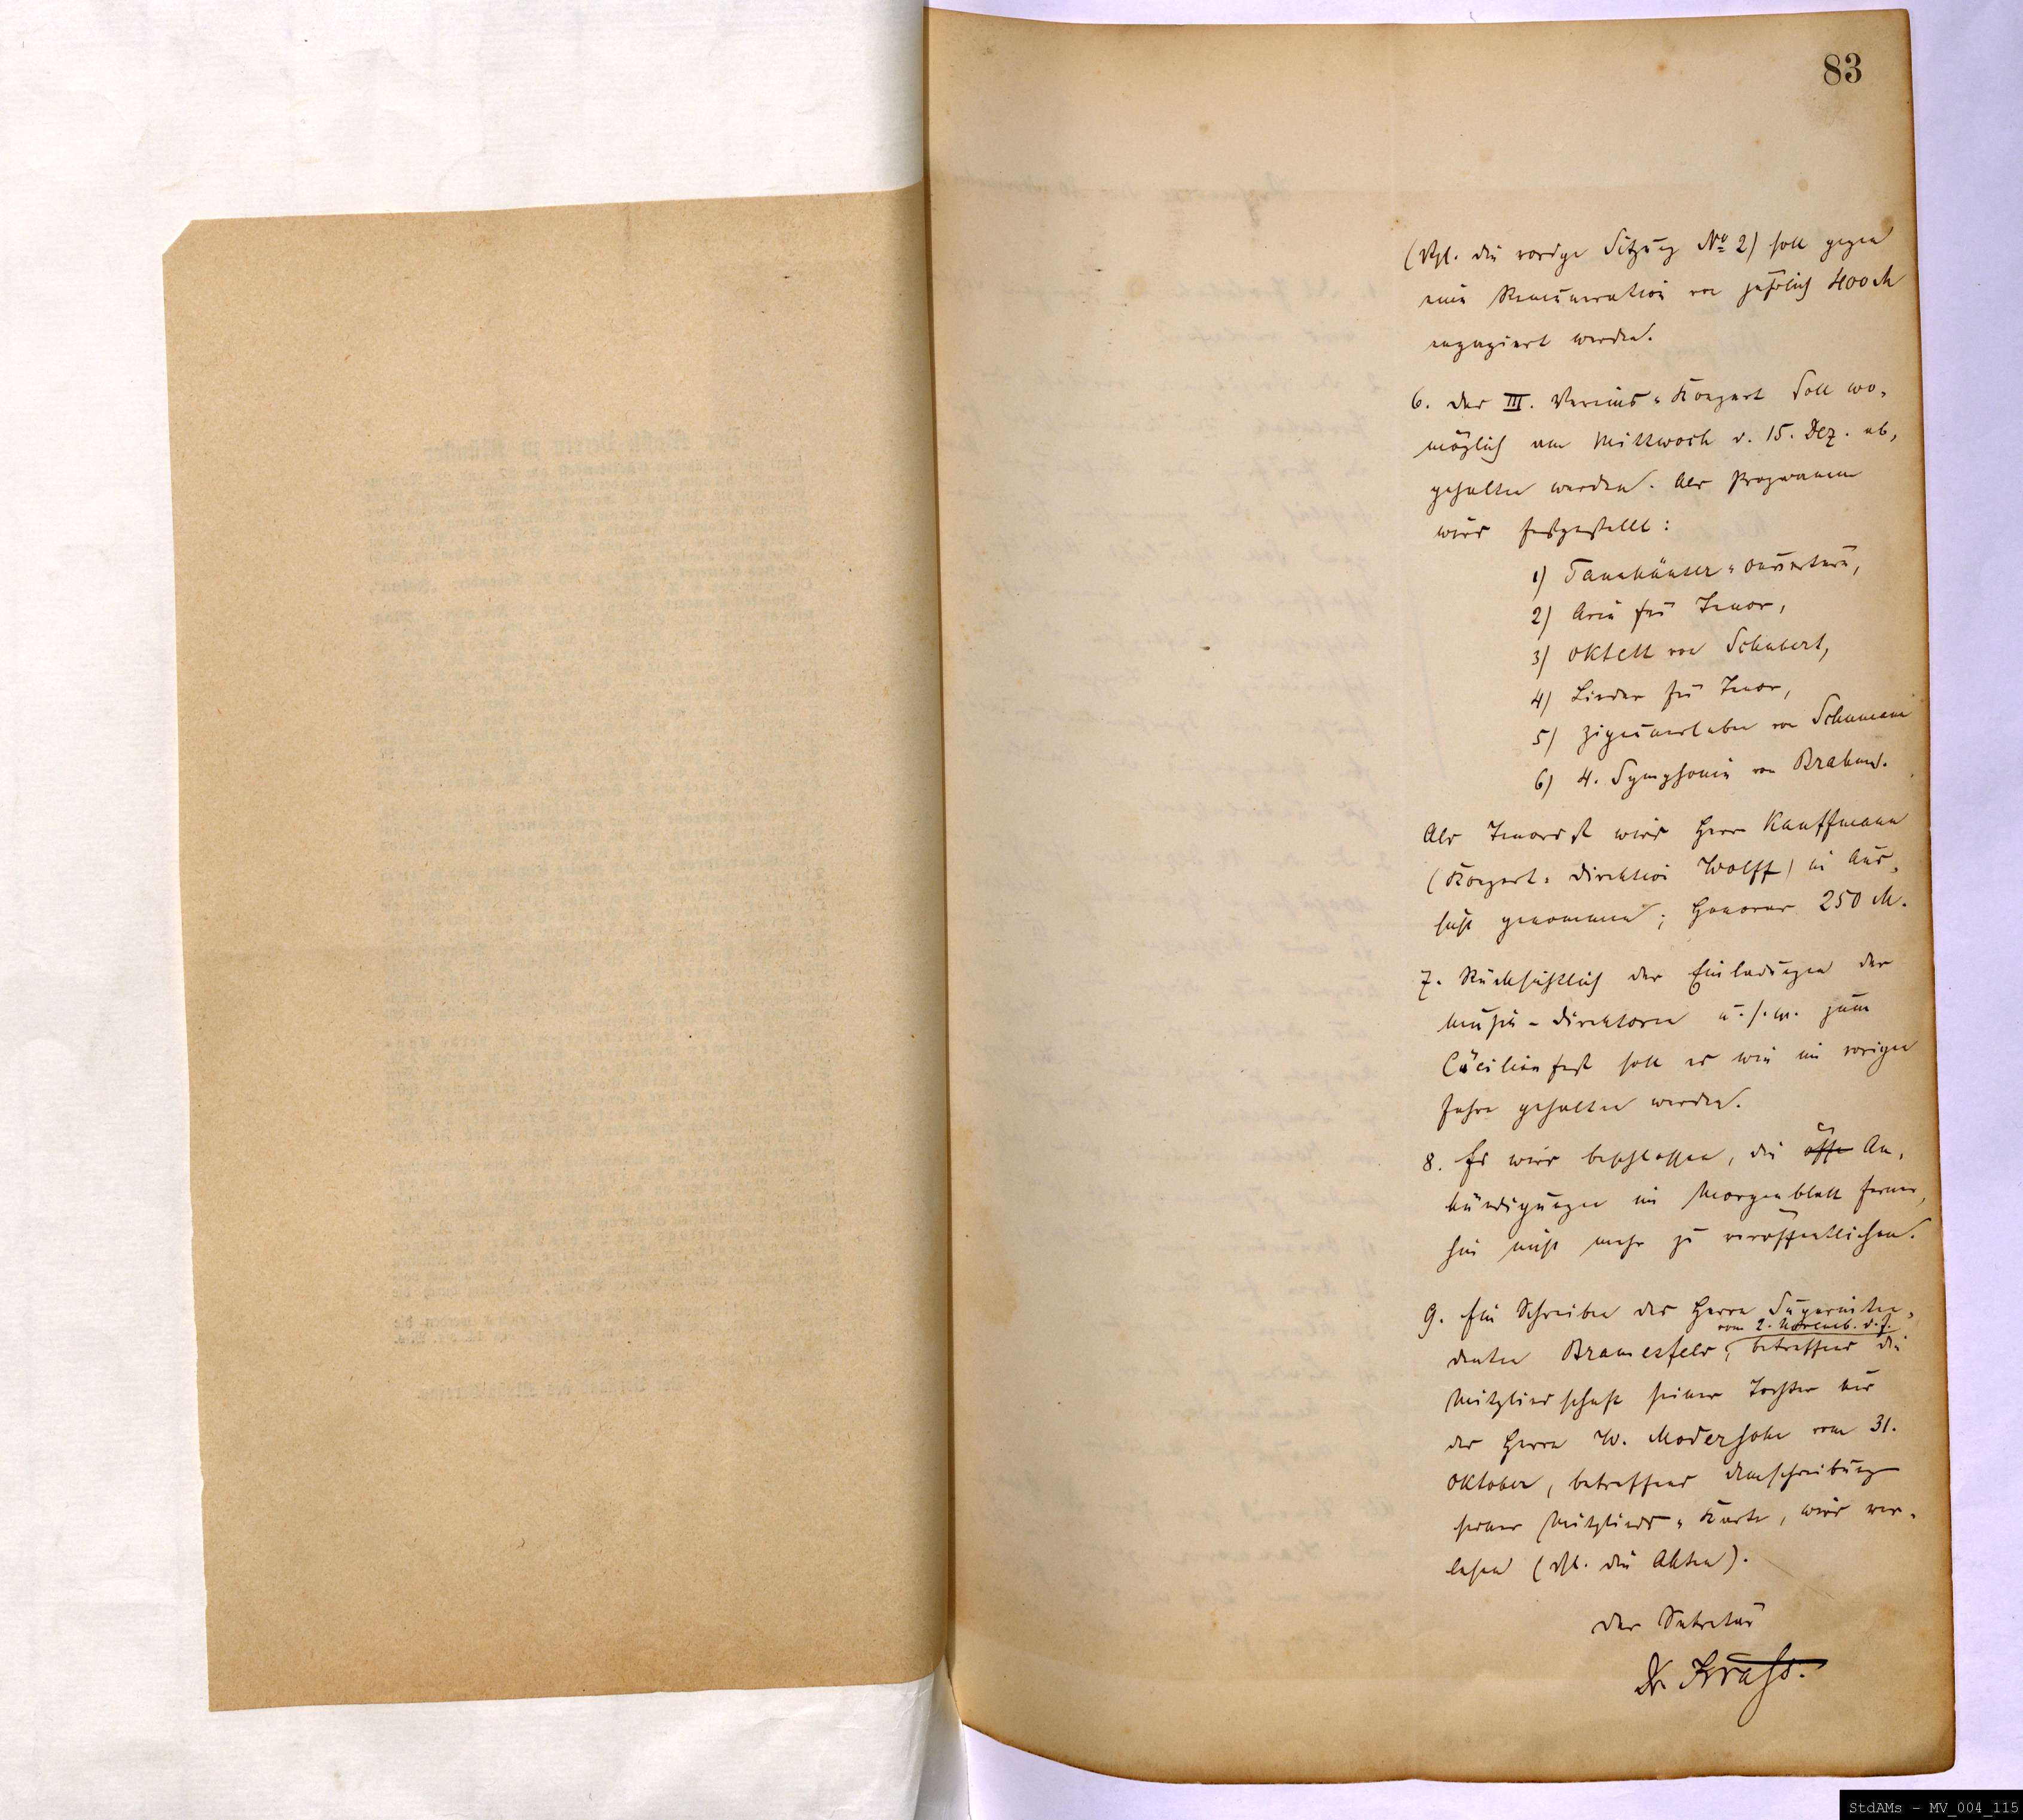 83
(Vgl. die vorige Sitzung No 2) soll gegen
eine Remuneration von jährlich 400 M
engagiert werden.
6. Das III. Vereins-Konzert soll wo-
möglich am Mittwoch d. 15. Dez. ab-
gehalten werden. Als Programm
wird festgestellt:
1) Tannhäuser-Ouverture,
2) Arie für Tenor,
3) Oktett von Schubert,
4) Lieder für Tenor,
5) Zigeunerleben von Schumann
6) 4. Symphonie von Brahms.
Als Tenorist wird Herr Kauffmann
(Konzert-Direktion Wolff) in Aus-
sicht genommen; Honorar 250 M.
7. Rücksichtlich der Einladungen der
Musik-Direktoren u.s.w. zum
Cäcilienfest soll es wie im vorigen
Jahre gehalten werden.
8. Es wird beschlossen, die öffe An-
kündigungen im Morgenblatt ferner-
hin nicht mehr zu veröffentlichen.
9. Ein Schreiben des Herrn Superinten-
vom 2. Novemb. d. J.
denten Bramesfeld, betreffend die
Mitgliedschaft seiner Tochter und
des Herrn W. Modersohn vom 31.
Oktober, betreffend Umschreibung
seiner Mitglieds-Karte, wird ver-
lesen (Vgl. die Akten).
Der Sekretär
Dr. Krass.
StdAMs - MV_004_115